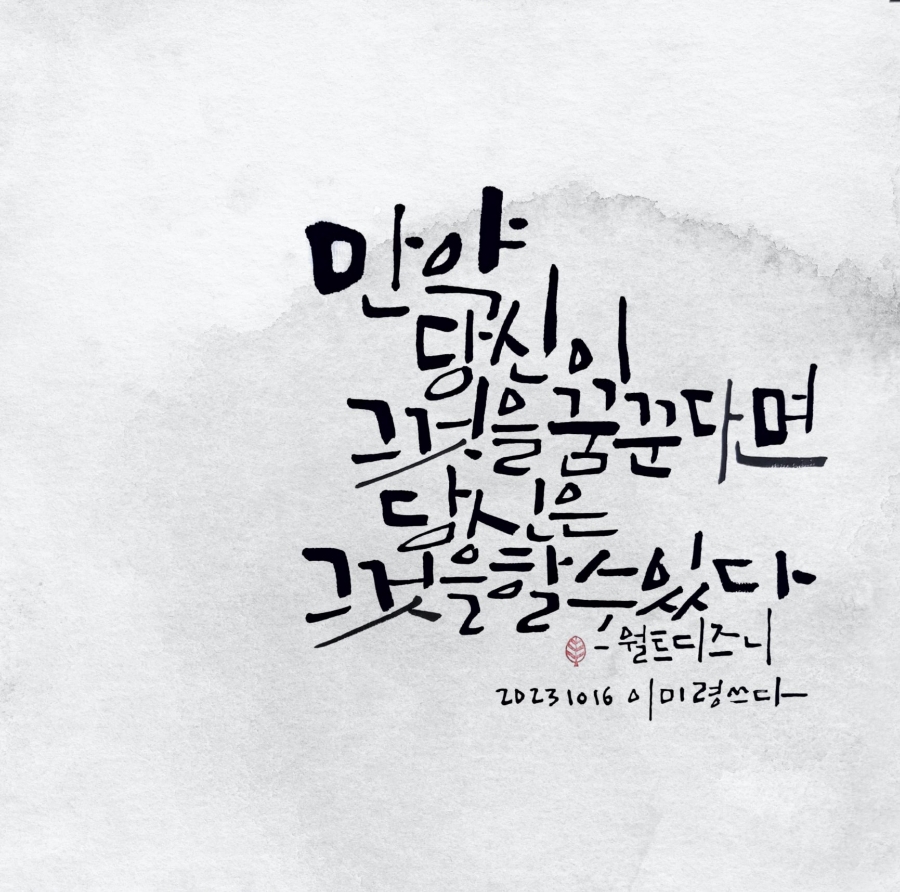 만약
당신이
그것을 꿈꾼다면
당신은
그것을 할 수 있다
- 월트디즈니
20231016 이미령쓰다